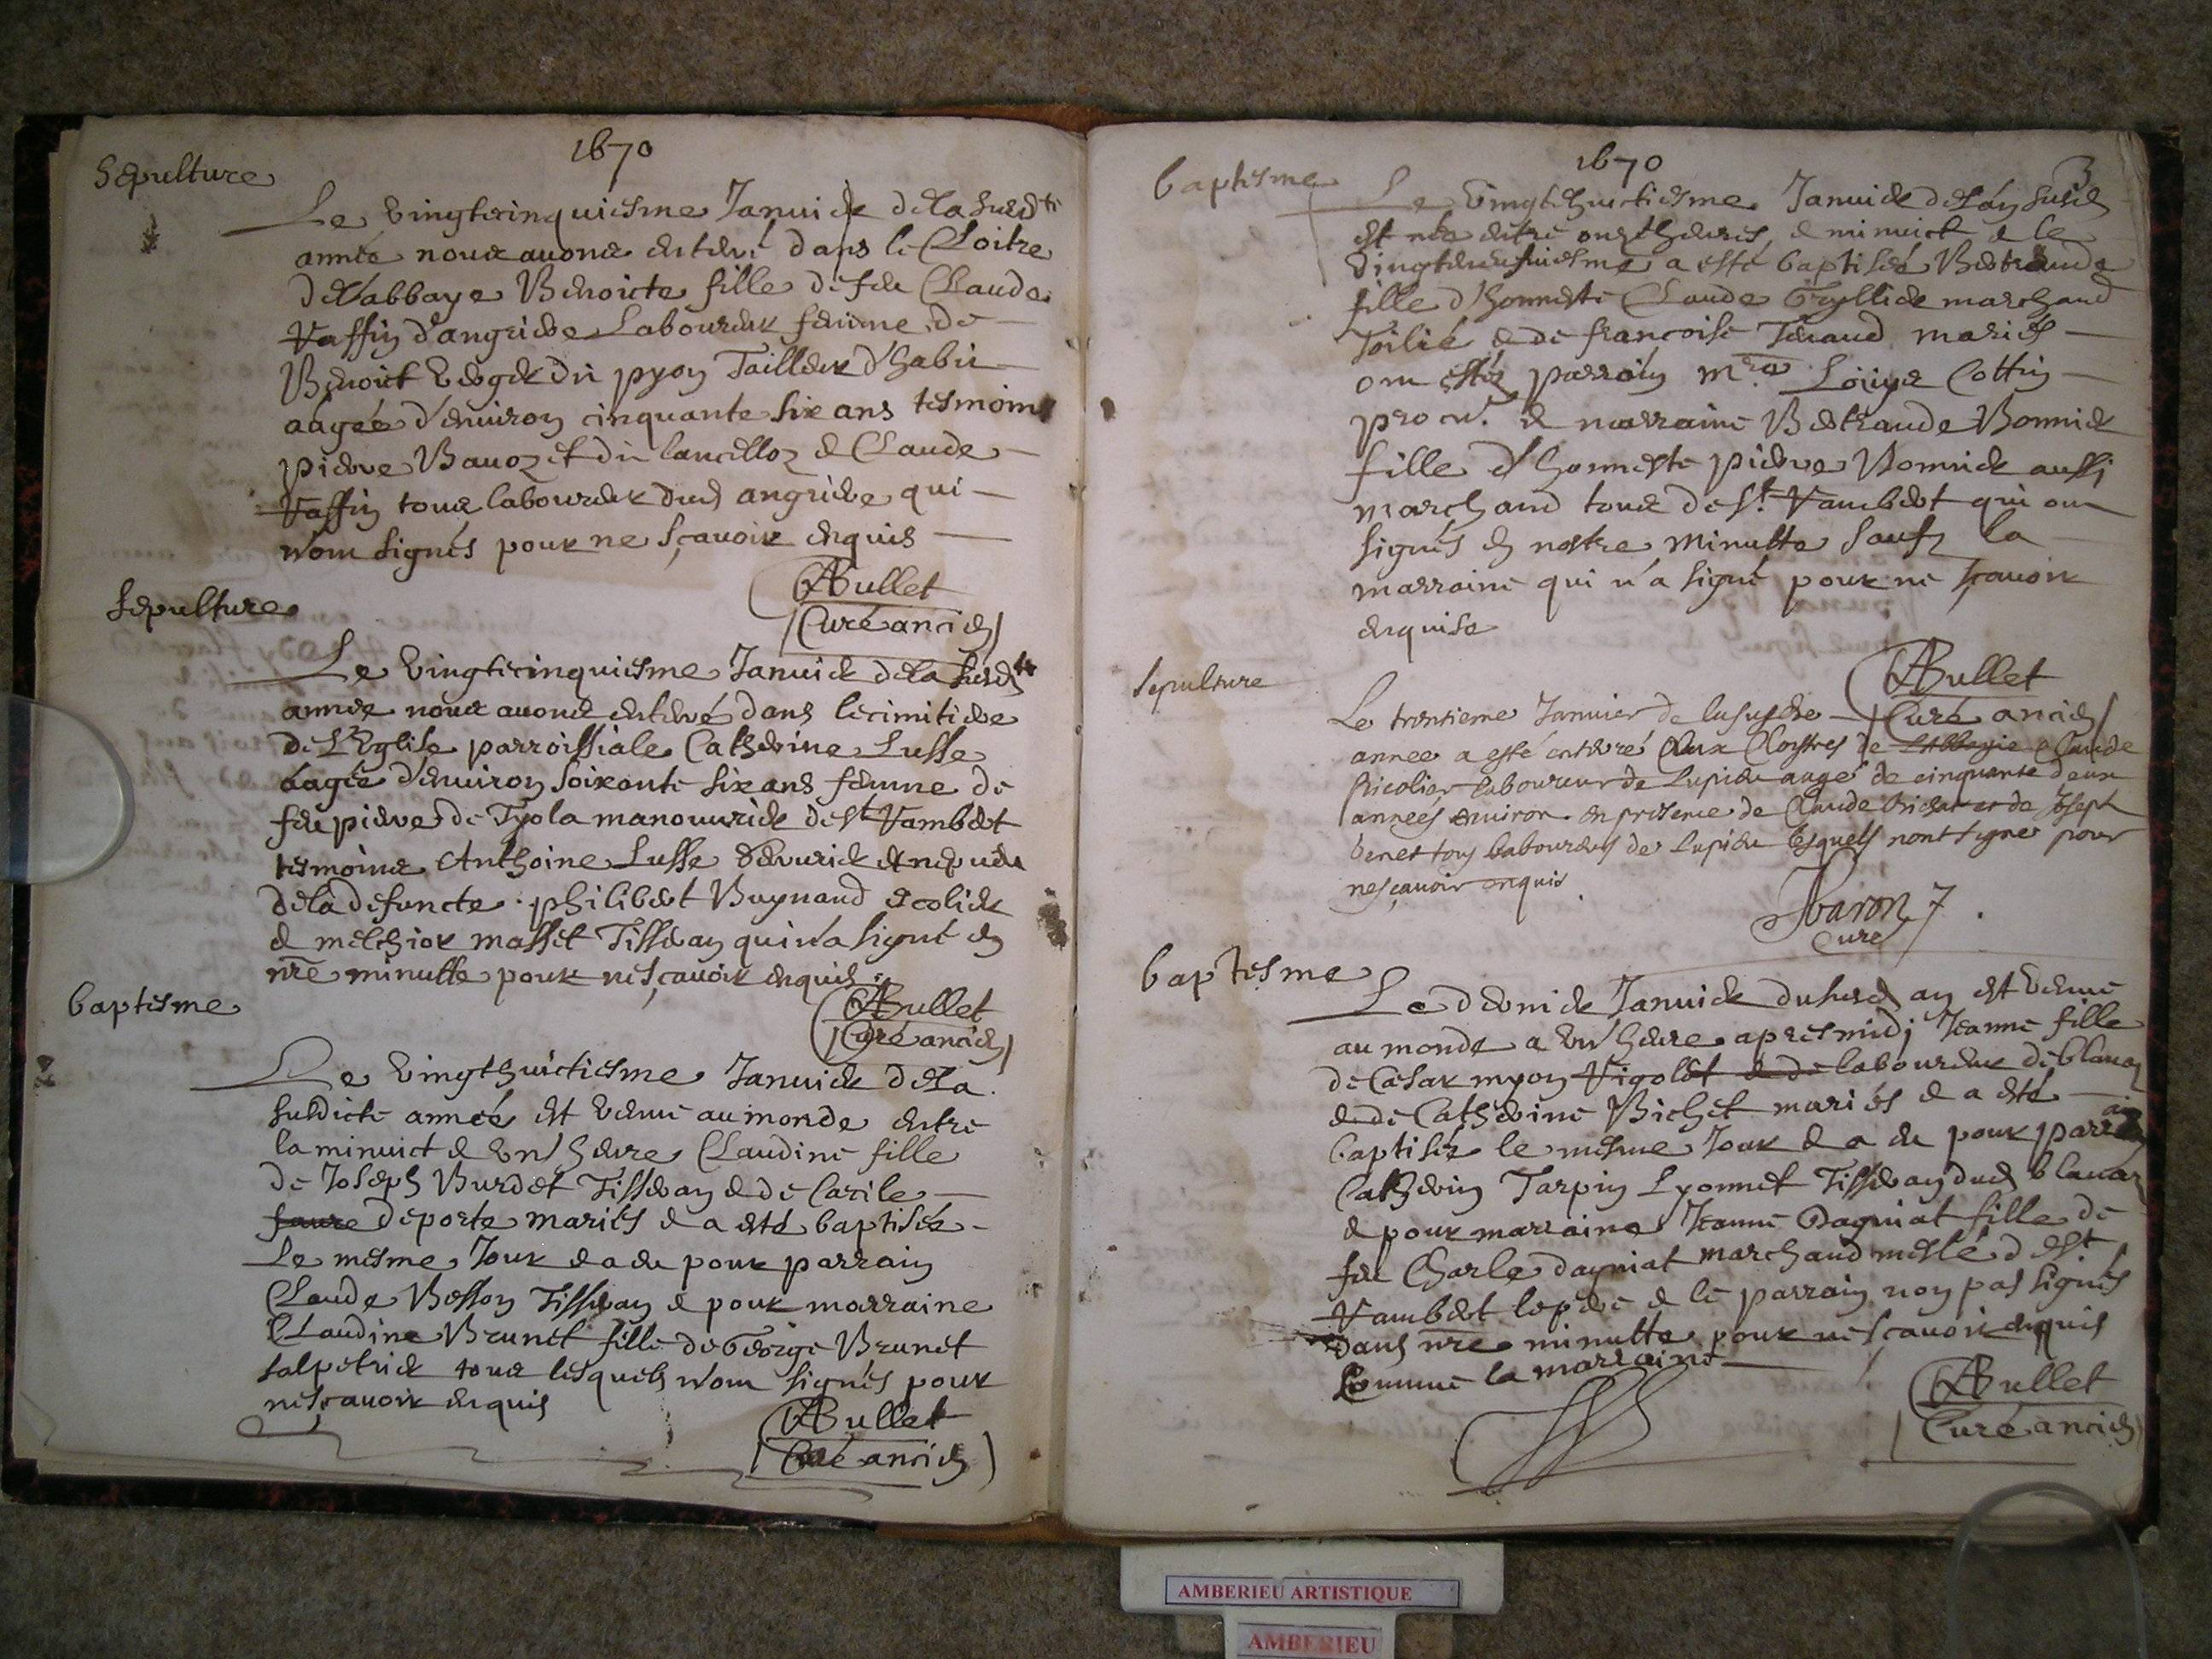 1670
Sepulture
Le vingtcinquiesme Januier de la susd.te
année nous auons enterré dans le Cloitre
de l'abbaye Benoicte fille de feu Claude
Vaffin d'angriere Laboureur femme de
Benoict Verger du pyon Tailleur d'habit
aagée d'enuiron cinquante six ans tesmoins
pierre Bauozet du lancelloz & Claude
Vaffin tous laboureur dud angriere qui
n'ont signés pour ne sçauoir enquis
ABullet
Curé ancien
Sepulture
Le vingtcinquiesme Januier de la susd.te
annee nous auons enterré dans le cimitiere
de L'Eglise parroissiale Catherine Lusse
aagée d'enuiron soixante six ans femme de
feu pierre de Tyola manouurier de St Rambert
tesmoins Anthoine Lusse & nepueu
de la defuncte philibert Buynand Escolier
& melchior masset Tisseran qui n'a signé en
nre minutte pour ne sçauoir enquis
ABullet
Curé ancien
baptesme
Le vingthuictiesme Januier de la
susdicte année est venue au monde entre
la minuict & vn' heure Claudine fille
de Joseph Burdet Tisseran & de Cecile
faure deporte mariés & a esté baptisée
Le mesme Jour & a eu pour parrain
Claude Besson Tisseran & pour marraine
Claudine Brunet fille de George Brunet
salpetrier tous lesquels n'ont signés pour
ne sçauoir enquis
ABullet
Curé ancien
1670
3
baptesme
Le Vingthuictiesme Januier de l'an susd
est née entre onze heures & minuict & le
vingtneufuiesme a esté baptisée Bertrande
fille d'honneste Claude Tryllier marchand
Toilié & de francoise Teraud mariés
ont estés parrain mre Louys Cottin
procur. & marraine Bertrande Bonnier
fille d'honneste pierre Bonnier aussi
marchand tous de St Rambert qui ont
signés en nostre minutte sauf la
marraine qui n'a signé pour ne sçauoir
enquise
ABullet
Curé ancien
Sepulture
Le trentieme Januier de la susdite
annee a esté enterré aux Cloystres de l'Abbayie Claude
Nicolier laboureur de Lupieu aagé de cinquante deux
années enuiron en presence de Claude et de Joseph
benet tous laboureurs de Lupieu lesquels nont signes pour
ne sçauoir enquis
Jbaron
Curé
baptesme
Le dernier Januier du susd an est venue
au monde a vn' heure apres midi Jeanne fille
de Cesar myon Vigolet & de laboureur de blanaz
& de Catherine Bichet mariés & a esté
baptisée le mesme Jour & a eu pour parrain
Catherin Tarpin Lyonnet Tisseran dud blanaz
& pour marraine Jeanne Dagniat fille de
feu Charle dagniat marchand meslé de St
Rambert le pere & le parrain n'on pas signés
dans nre minutte pour ne sçauoir enquis
Comme la marraine
ABullet
Curé ancien
AMBERIEU ARTISTIQUE
AMBERIEU